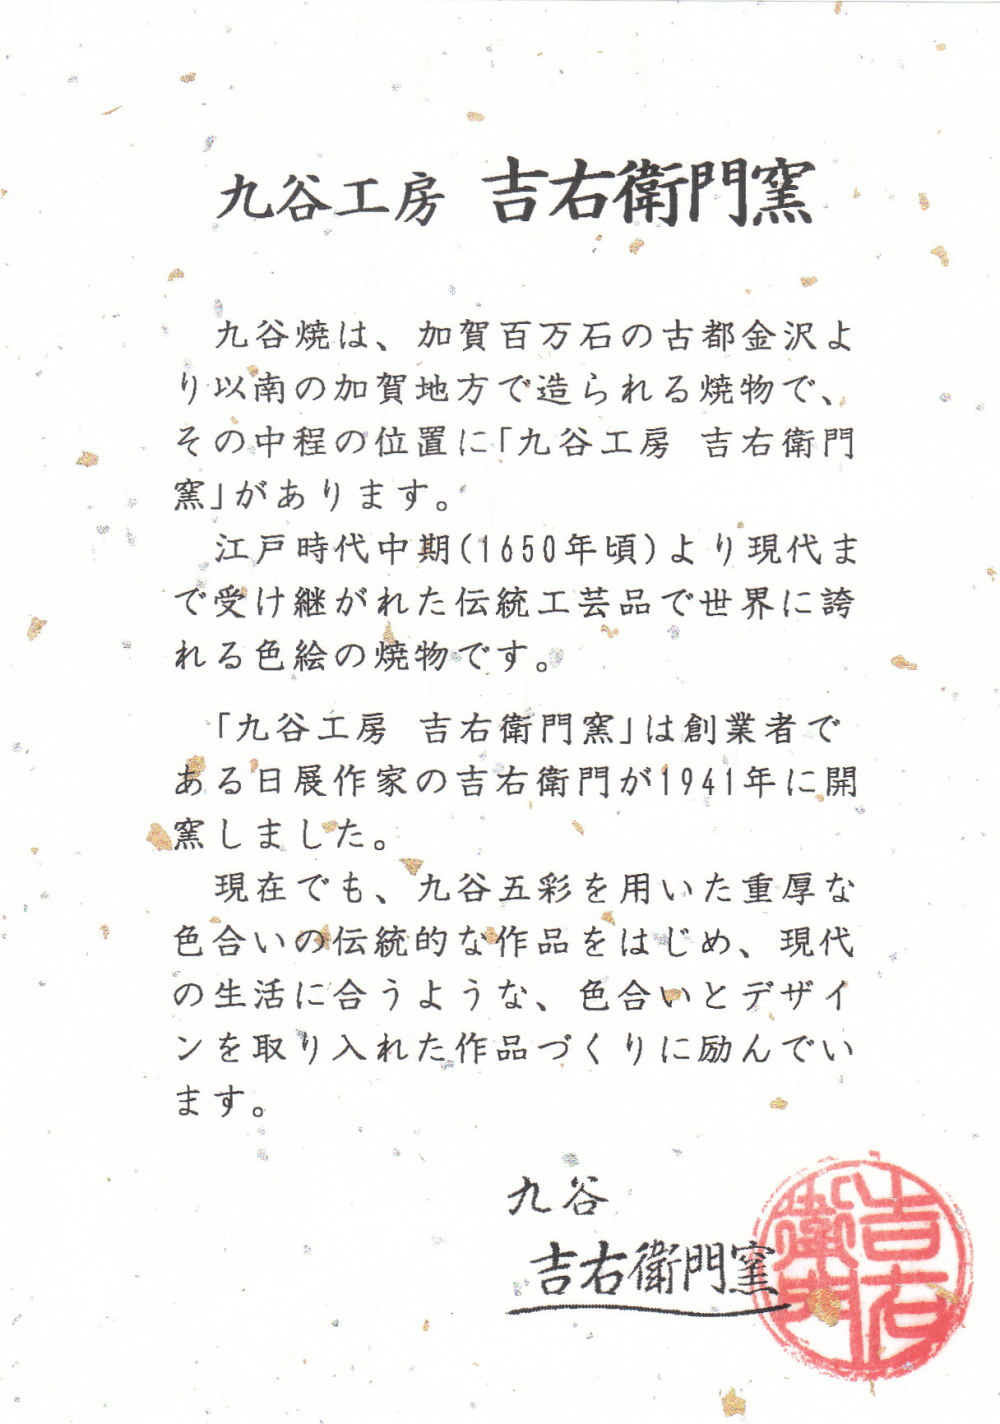 九谷工房 吉右衛門窯
九谷焼は、加賀百万石の古都金沢よ
り以南の加賀地方で造られる焼物で、
その中程の位置に「九谷工房 吉右衛門
窯」があります。
江戸時代中期(1650年頃)より現代ま
で受け継がれた伝統工芸品で世界に誇
れる色絵の焼物です。
「九谷工房 吉右衛門窯」は創業者で
ある日展作家の吉右衛門が1941年に開
窯しました。
現在でも、九谷五彩を用いた重厚な
色合いの伝統的な作品をはじめ、現代
の生活に合うような、色合いとデザイ
ンを取り入れた作品づくりに励んでい
ます。
九谷
吉右衛門窯
吉右衛門